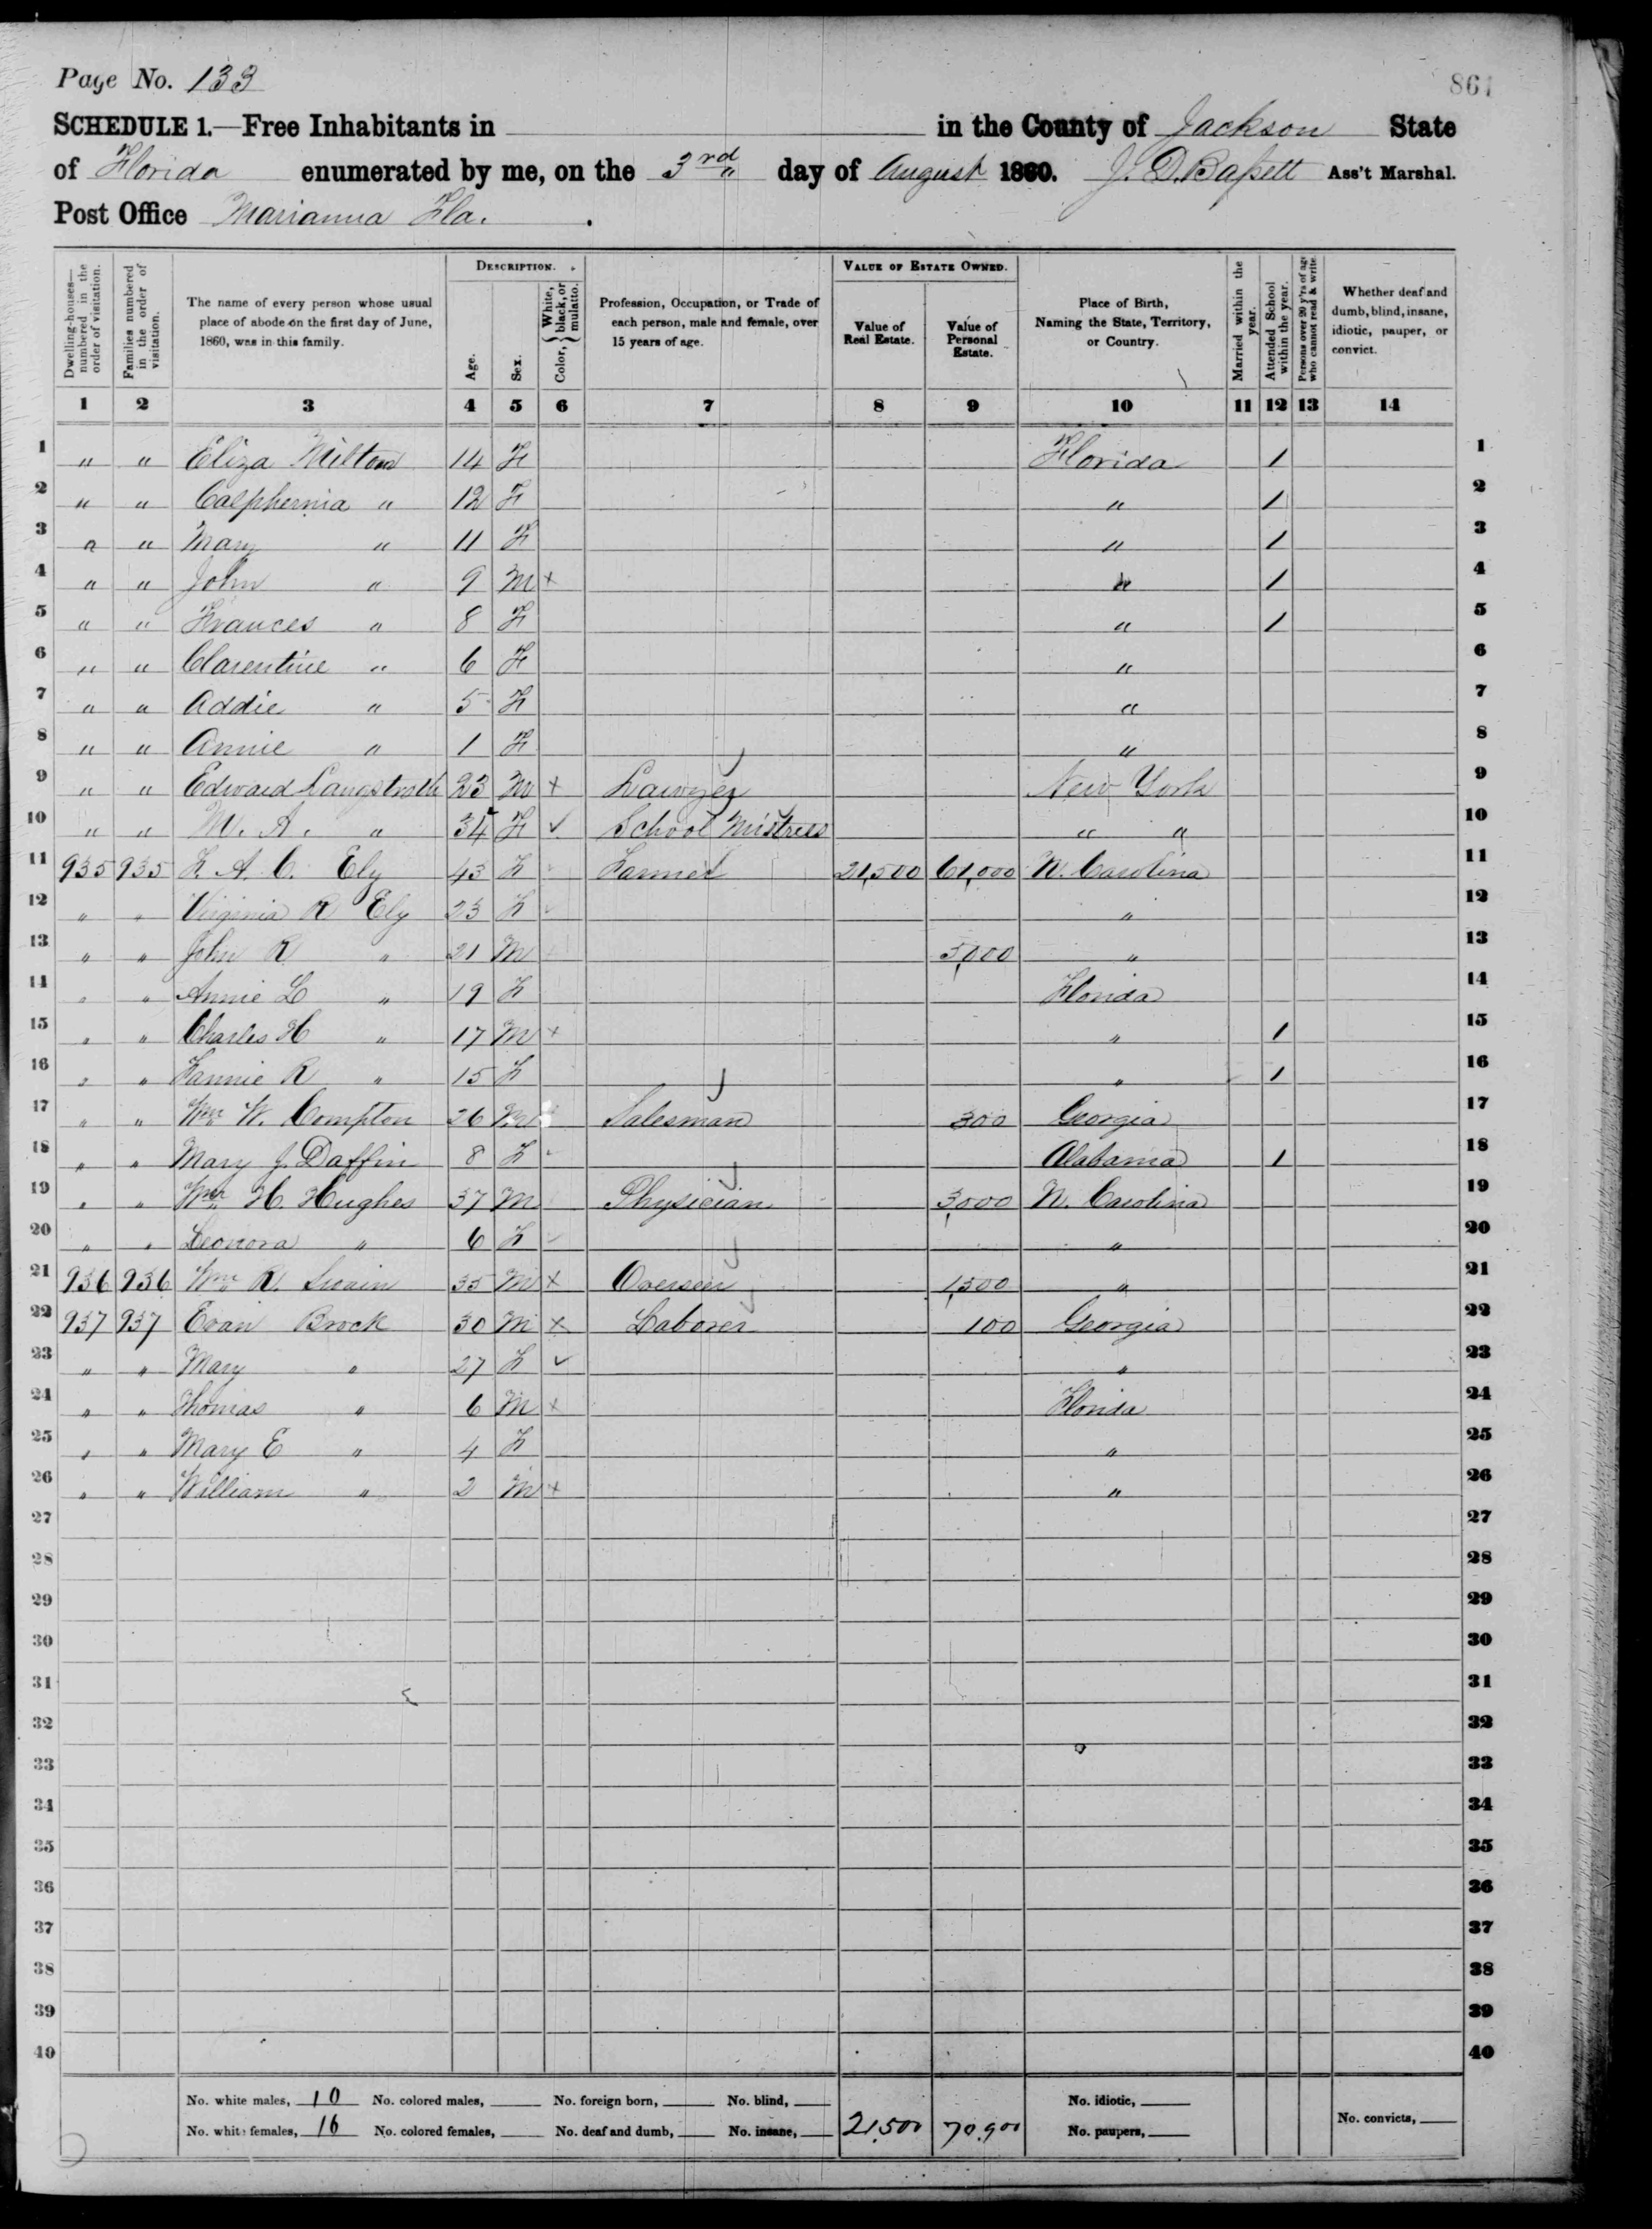 Page No. 133
861
SCHEDULE 1.—Free Inhabitants in in the County of Jackson State
of Florida enumerated by me, on the 3rd day of August 1860. J. D. Baſsett Ass't Marshal.
Post Office Marianna Fla.
Dwelling-houses—numbered in the order of visitation.
Families numbered in the order of visitation.
The name of every person whose usual place of abode on the first day of June, 1860, was in this family.
DESCRIPTION.
Age.
Sex.
Color, { White, black, or mulatto.
Profession, Occupation, or Trade of each person, male and female, over 15 years of age.
VALUE OF ESTATE OWNED.
Value of Real Estate.
Value of Personal Estate.
Place of Birth, Naming the State, Territory, or Country.
Married within the year.
Attended School within the year.
Persons over 20 y'rs of age who cannot read & write.
Whether deaf and dumb, blind, insane, idiotic, pauper, or convict.
1 2 3 4 5 6 7 8 9 10 11 12 13 14
1 " " Eliza Milton 14 F Florida 1 1
2 " " Calphernia " 12 F " 1 2
3 " " Mary " 11 F " 1 3
4 " " John " 9 M x " 1 4
5 " " Frances " 8 F " 1 5
6 " " Clarentine " 6 F " 6
7 " " Addie " 5 F " 7
8 " " Annie " 1 F " 8
9 " " Edward Langstroth 23 M x Lawyer New York 9
10 " " M. A. " 34 F ✓ School Mistress " " 10
11 935 935 F. A. C. Ely 43 F Farmer 21,500 61,000 N. Carolina 11
12 " " Virginia R Ely 23 F " 12
13 " " John R " 21 M 5,000 " 13
14 " " Annie L " 19 F Florida 14
15 " " Charles H " 17 M x " 1 15
16 " " Fannie R " 15 F " 1 16
17 " " Wm W. Compton 26 M Salesman 300 Georgia 17
18 " " Mary J. Daffin 8 F Alabama 1 18
19 " " Wm H. Hughes 37 M Physician 3,000 N. Carolina 19
20 " " Leonora " 6 F " 20
21 936 936 Wm R. Swain 35 M x Overseer 1,500 " 21
22 937 937 Evan Brock 30 M x Laborer 100 Georgia 22
23 " " Mary " 27 F ✓ " 23
24 " " Thomas " 6 M x Florida 24
25 " " Mary E " 4 F " 25
26 " " William " 2 M x " 26
27 27
28 28
29 29
30 30
31 31
32 32
33 33
34 34
35 35
36 36
37 37
38 38
39 39
40 40
No. white males, 10 No. colored males, No. foreign born, No. blind, No. idiotic,
No. white females, 16 No. colored females, No. deaf and dumb, No. insane, 21,500 70,900 No. paupers, No. convicts,